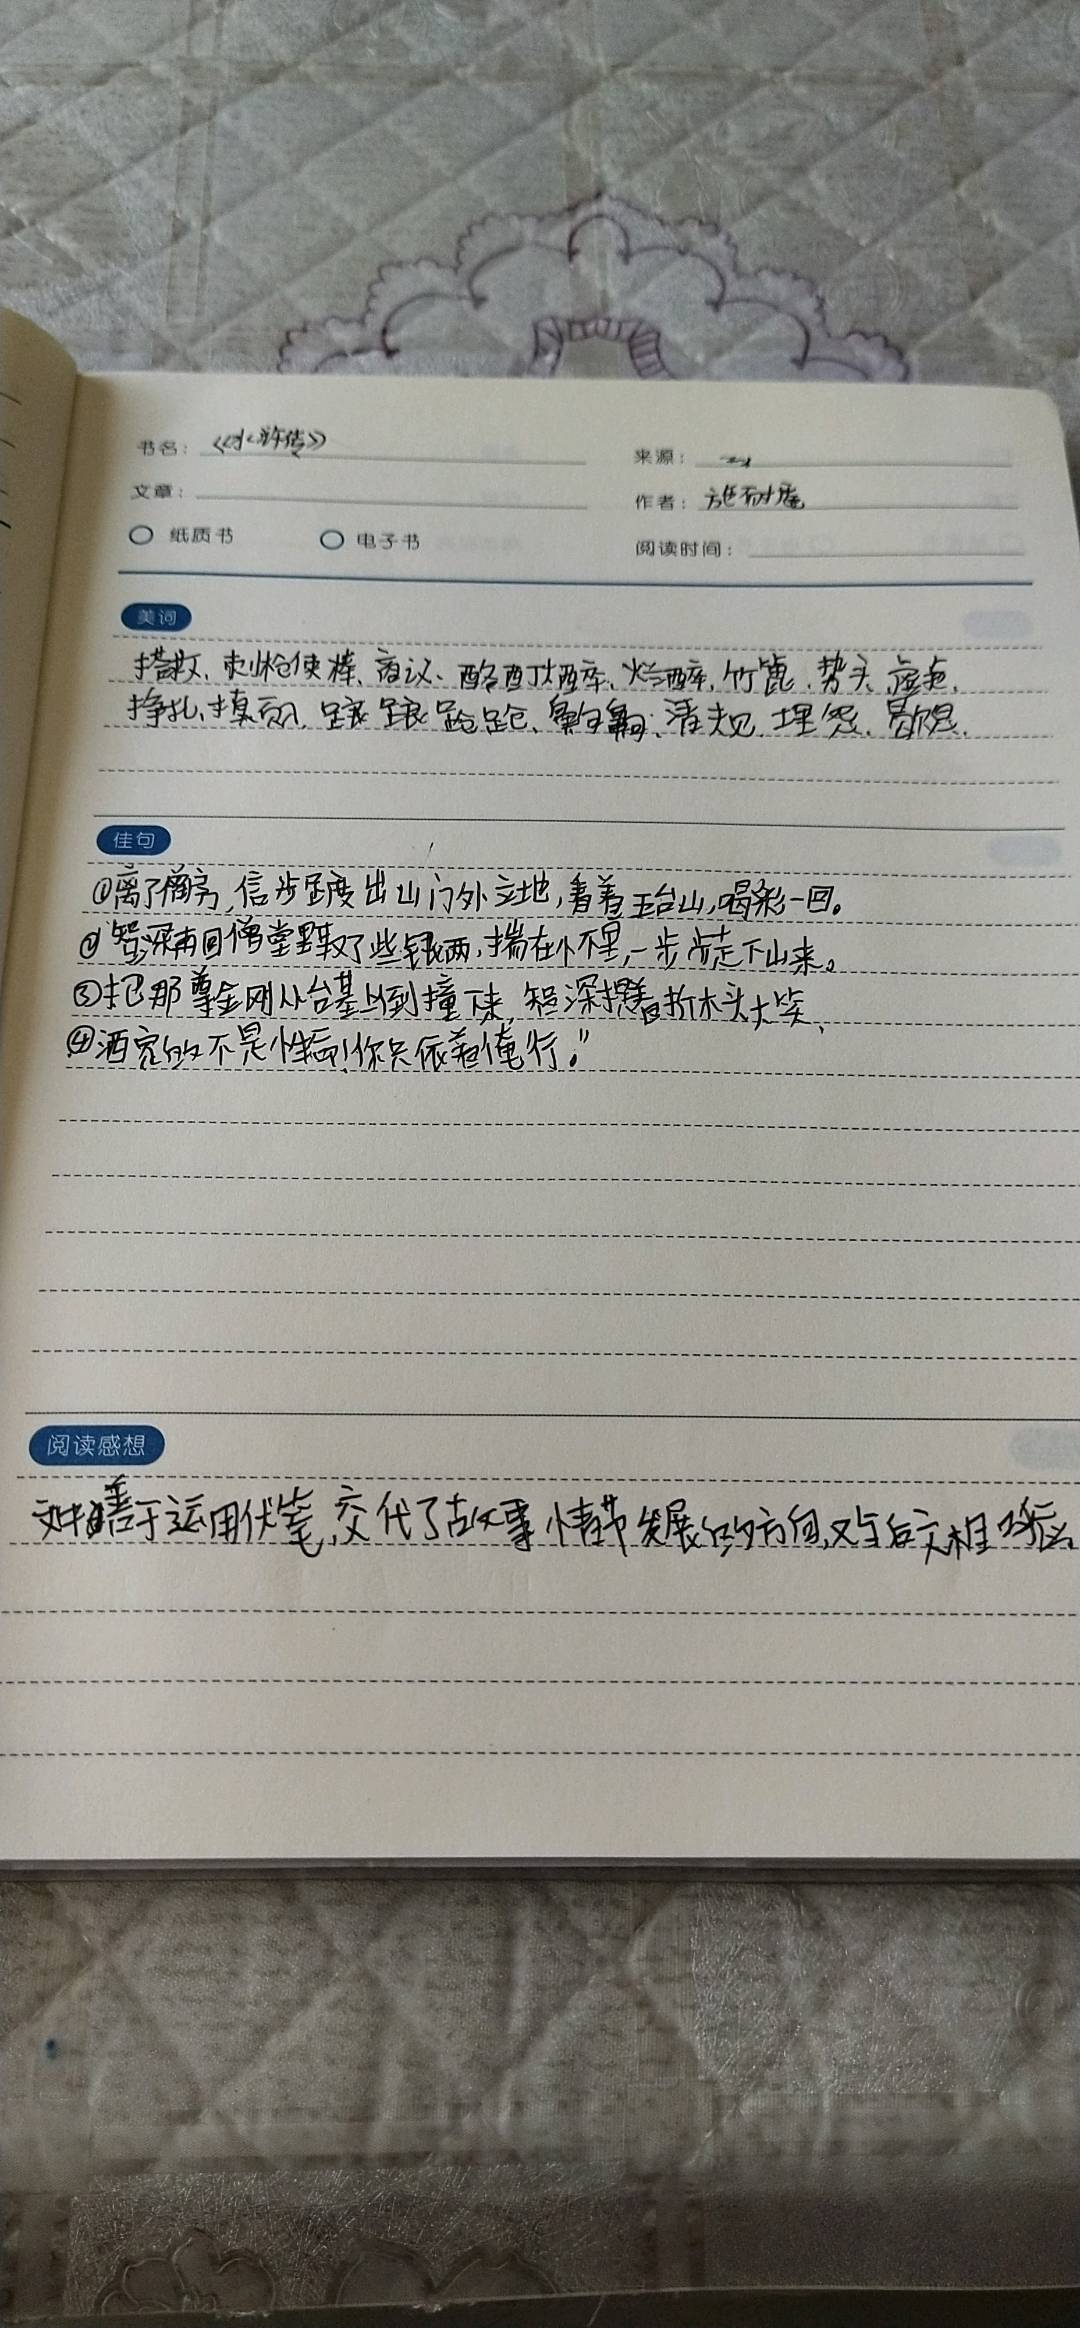 书名：《水浒传》
来源：
文章：
作者：施耐庵
纸质书 电子书
阅读时间：
美词
搭救、刺枪使棒、商议、酩酊大醉、烂醉、竹篦、势头、
挣扎、摸、踉踉跄跄、清规、埋怨、
佳句
①离了僧房，信步踱出山门外立地，看着五台山，喝彩一回。
②智深再回僧堂里取了些银两，揣在怀里，一步步走下山来。
③把那尊金刚从台基上倒撞下来，智深提着折木头大笑，
④洒家的不是性命！你只依着俺行。”
阅读感想
善于运用伏笔，交代了故事情节发展的方向，又与后文相呼应。